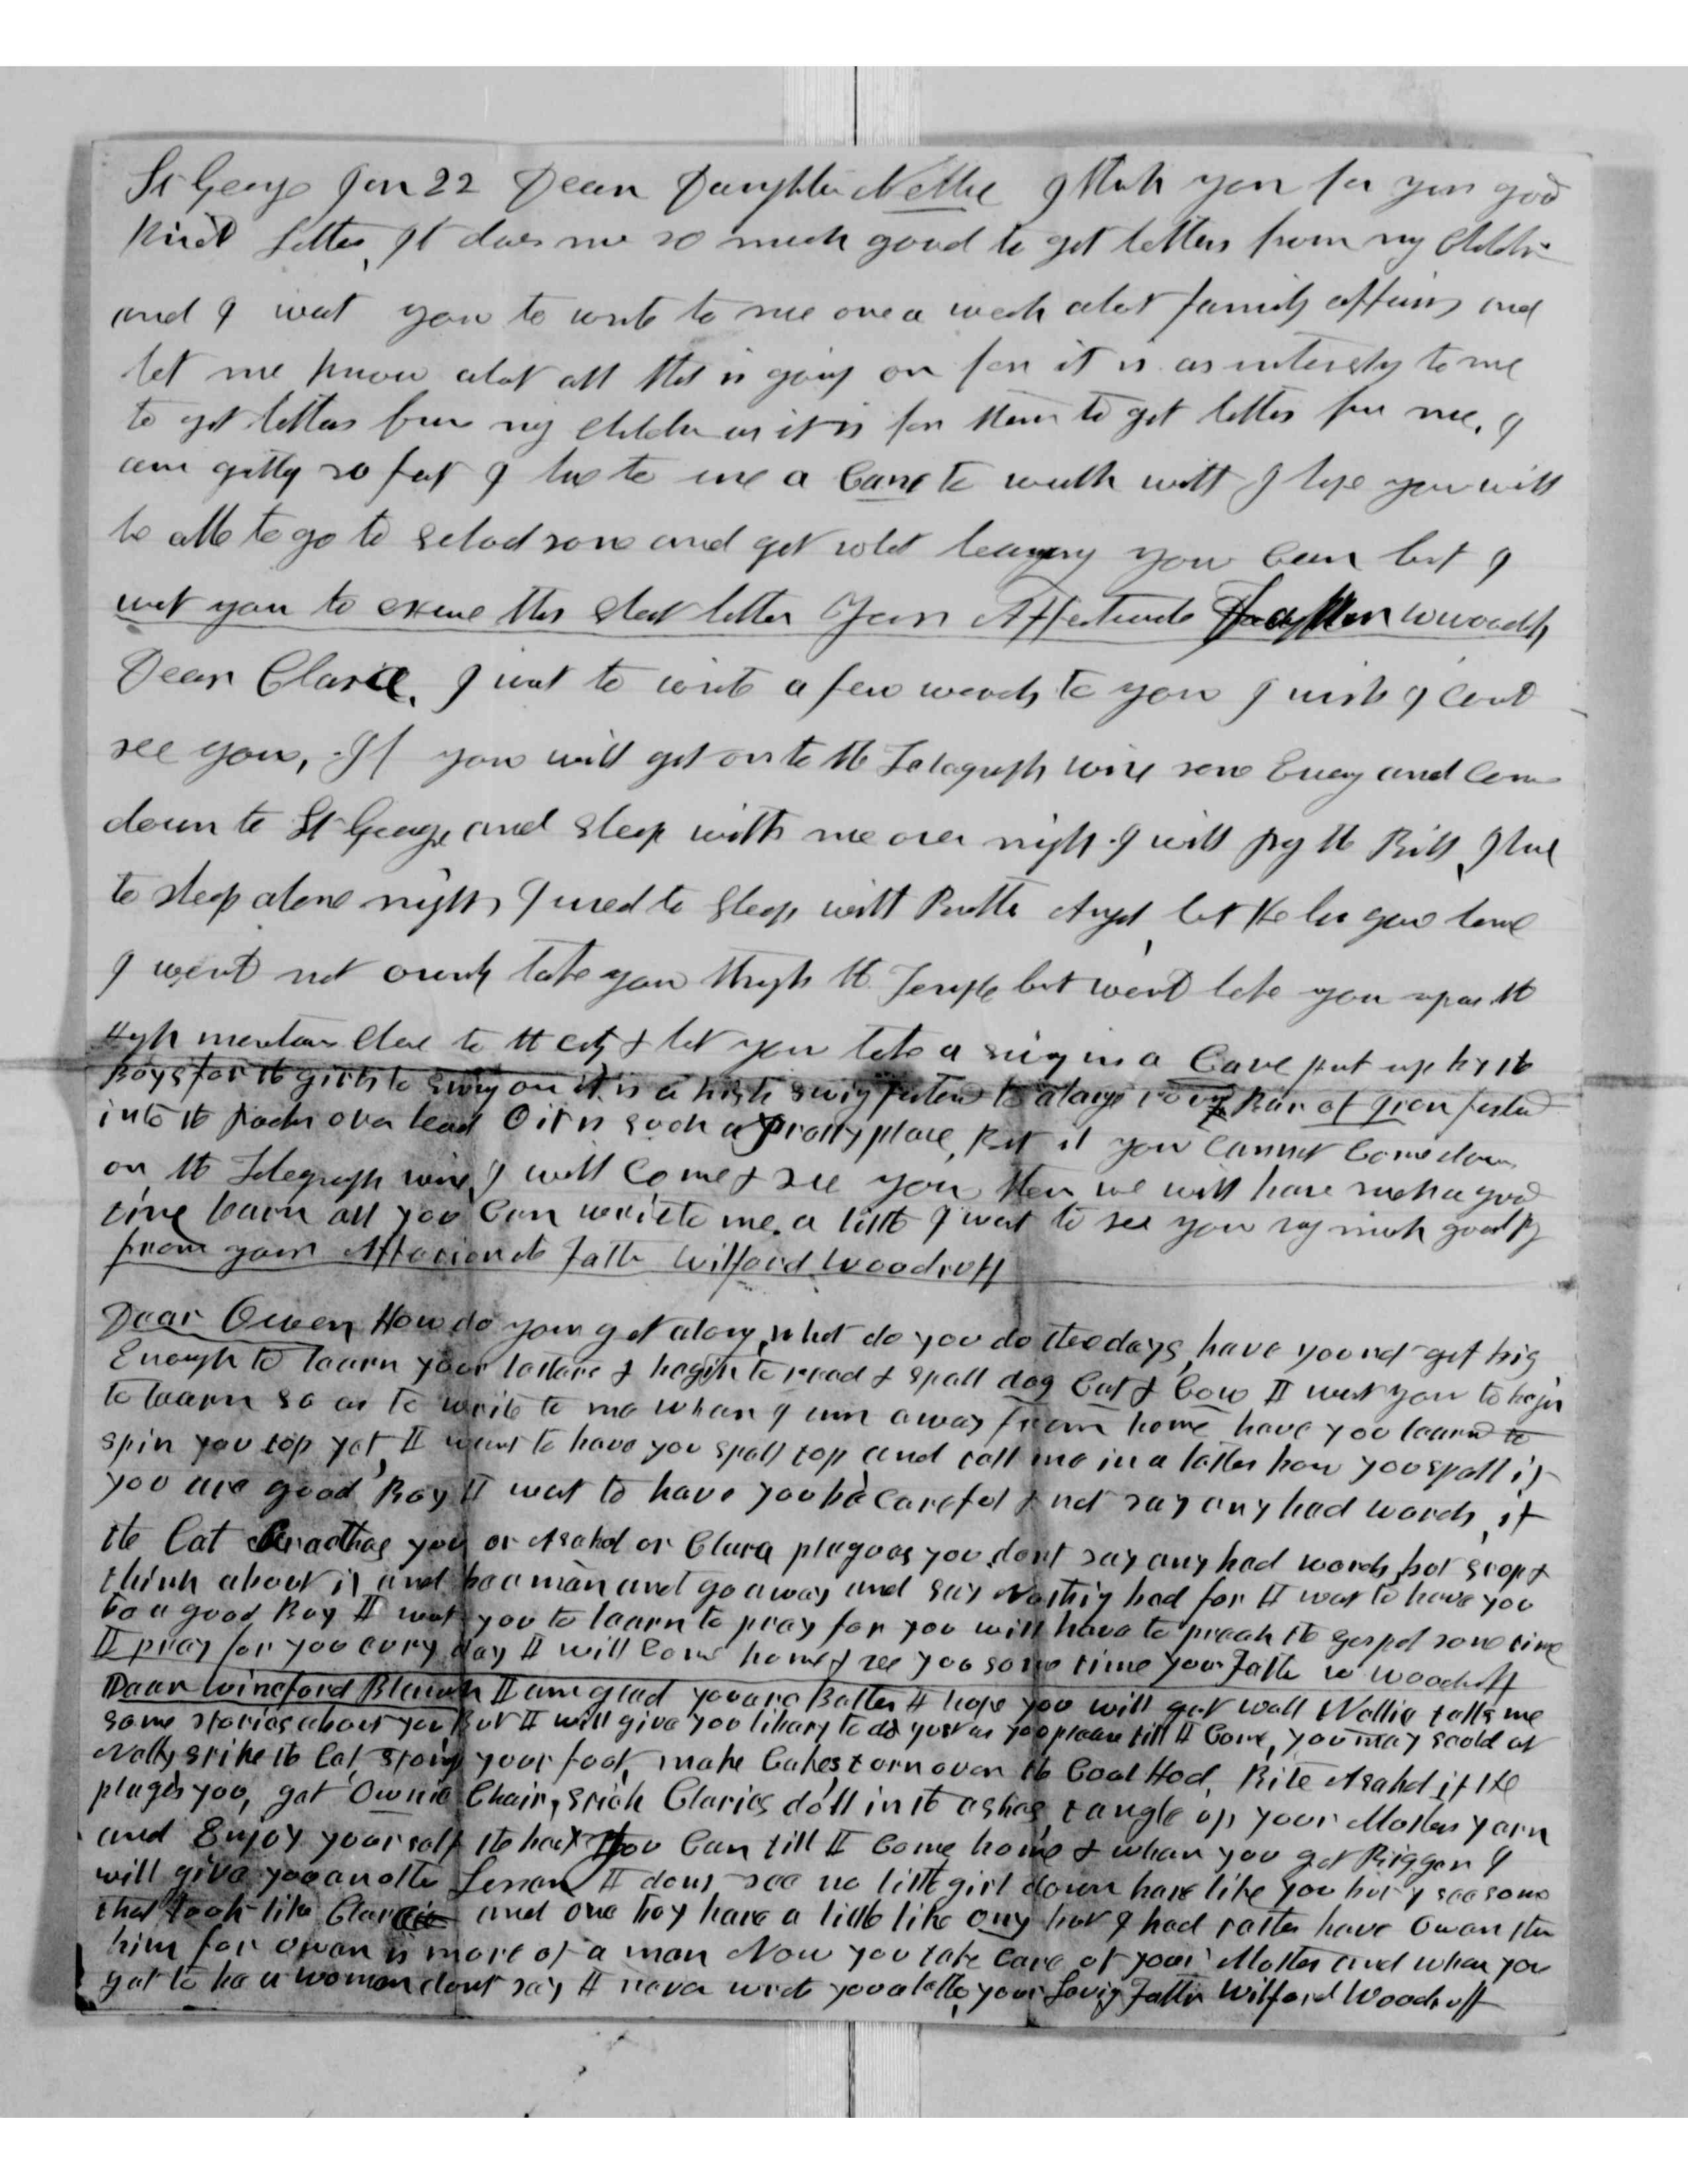 St George Jan 22 Dear Daughter Nettie I thank you for your good
kind Letter, It does me so much good to get letters from my Children
and I want you to write to me once a week about family affairs and
let me know about all that is going on for it is as interesting to me
to get letters from my children as it is for them to get letters from me. I
am getting so fat I have to use a Cane to walk with I hope you will
be able to go to school some and get what learning you Can but I
want you to excuse this short letter Your Affectionate Father W Woodruff
Dear Clarie. I want to write a few words to you I wish I could
see you, If you will get on to the Telegraph wire some Eveng and Come
down to St George and sleep with me over night I will pay the Bill, I have
to sleep alone nights I used to Sleep with Brother but He has gone home
I would not ownly take you through the Temple but would take you upon the
High mountain Close to the City & let you take a swing in a Cave put up by the
Boys for the girls to swing on it is a high swing fastend to a large round Bar of Iron fasted
into the Rocks over head O it is such a pretty place, But if you Cannot Come down
on the Telegraph wire, I will Come & see you then we will have such a good
time learn all you Can write to me a little I want to see you vry much good by
from your Affectionate Father Wilford Woodruff
Dear Owen How do you get along, what do you do these days, have you not got big
Enough to learn your letters & begin to read & spell dog Cat & Cow I want you to begin
to learn so as to write to me when I am away from home have you learnd to
spin you top yet, I want to have you spell top and tell me in a letter how you spell it
you are good Boy I want to have you be Careful & not say any bad words, if
the Cat Scratches you or Asahel or Clara plagues you dont say any bad words but stop &
think about it and be a man and go away and say Nothing bad for I want to have you
be a good Boy I want you to learn to pray for you will have to preach the gospel some time
I pray for you evry day I will Come home & see you some time your Father W Woodruff
Dear Wineford Blanch I am glad you are Better I hope you will get well Nellie tells me
some stories about you But I will give you libary to do just as you please till I Come, you may scold at
Nelly strike the Cat, stomp your foot, make Cakes turn over the Coal Hod, Bite Asahel if He
plages you, get Ownie Chair, stick Claries doll in the ashes, tangle up your Mothers yarn
and Enjoy yourself the best You Can till I Come home & when you get Bigger I
will give you another Lesson I dont see no little girl down here like you but I see some
that look like Clara and one boy here a little like ony but I had rather have Owen then
him for Owen is more of a man Now you take Care of your Mother and when you
get to be a woman dont say I never wrote you a letter, your Loving Father Wilford Woodruff